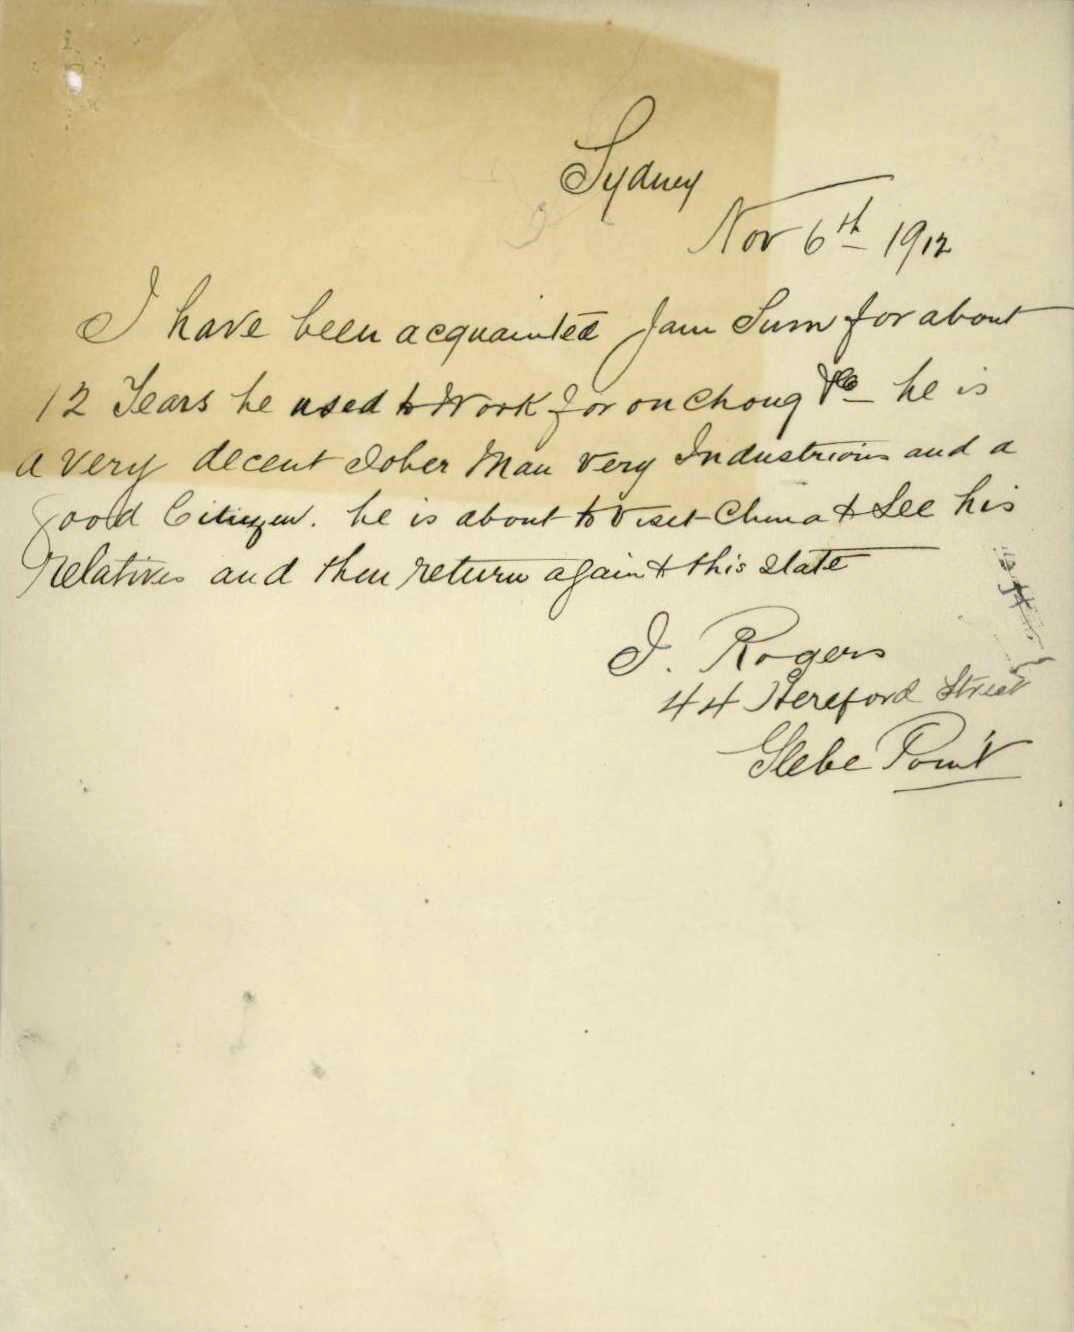 Sydney
Nov 6th 1912
I have been acquainted Jam Sum for about
12 Years he used to Work for on chong & Co he is
a very decent Sober Man very Industrious and a
good Citizen. he is about to visit China to See his
relatives and then return again to this state
J. Rogers
44 Hereford Street
Glebe Point